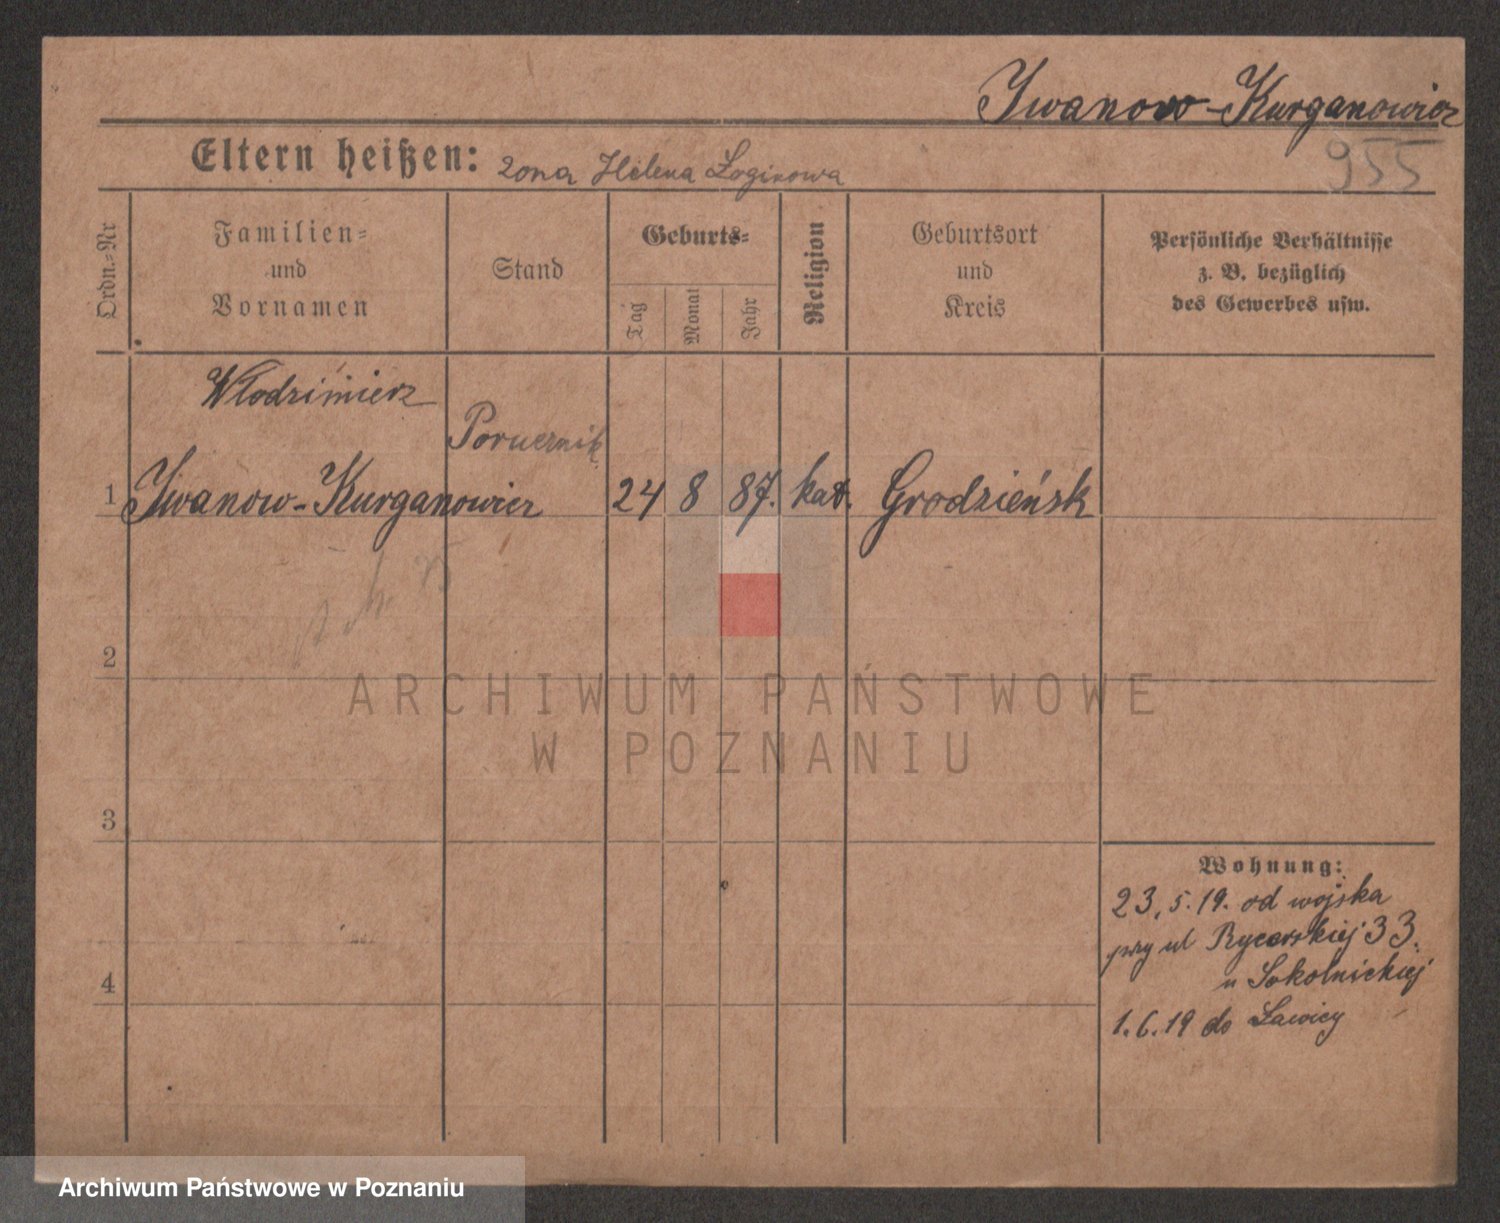 Iwanow-Kurganowicz
955
Eltern heißen: żona Helena Łoginowa
Ordn.-Nr
Familien-
und
Vornamen
Stand
Geburts-
Tag
Monat
Jahr
Religion
Geburtsort
und
Kreis
Persönliche Verhältnisse
z. B. bezüglich
des Gewerbes usw.
Włodzimierz
Porucznik
1 Iwanow-Kurganowicz 24 8 87. kat. Grodzieńsk
2
3
4
Wohnung:
23.5.19. od wojska
przy ul Rycerskiej 33.
u Sokolnickiej
1.6.19 do Ławicy
ARCHIWUM PAŃSTWOWE
W POZNANIU
Archiwum Państwowe w Poznaniu